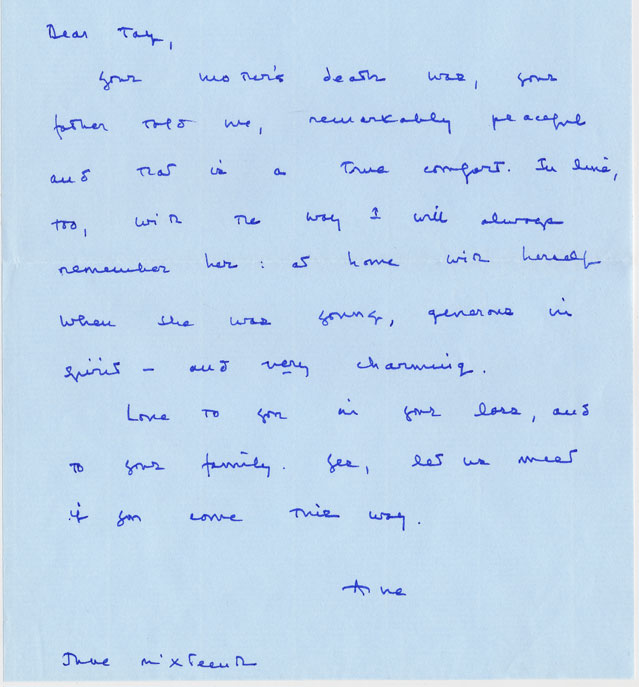 Dear Tay,
your mother's death was, your
father told me, remarkably peaceful
and that is a true comfort. In line,
too, with the way I will always
remember her: at home with herself
when she was young, generous in
spirit – and very charming.
Love to you in your loss, and
to your family. Yes, let us meet
if you come this way.
Anne
June sixteenth